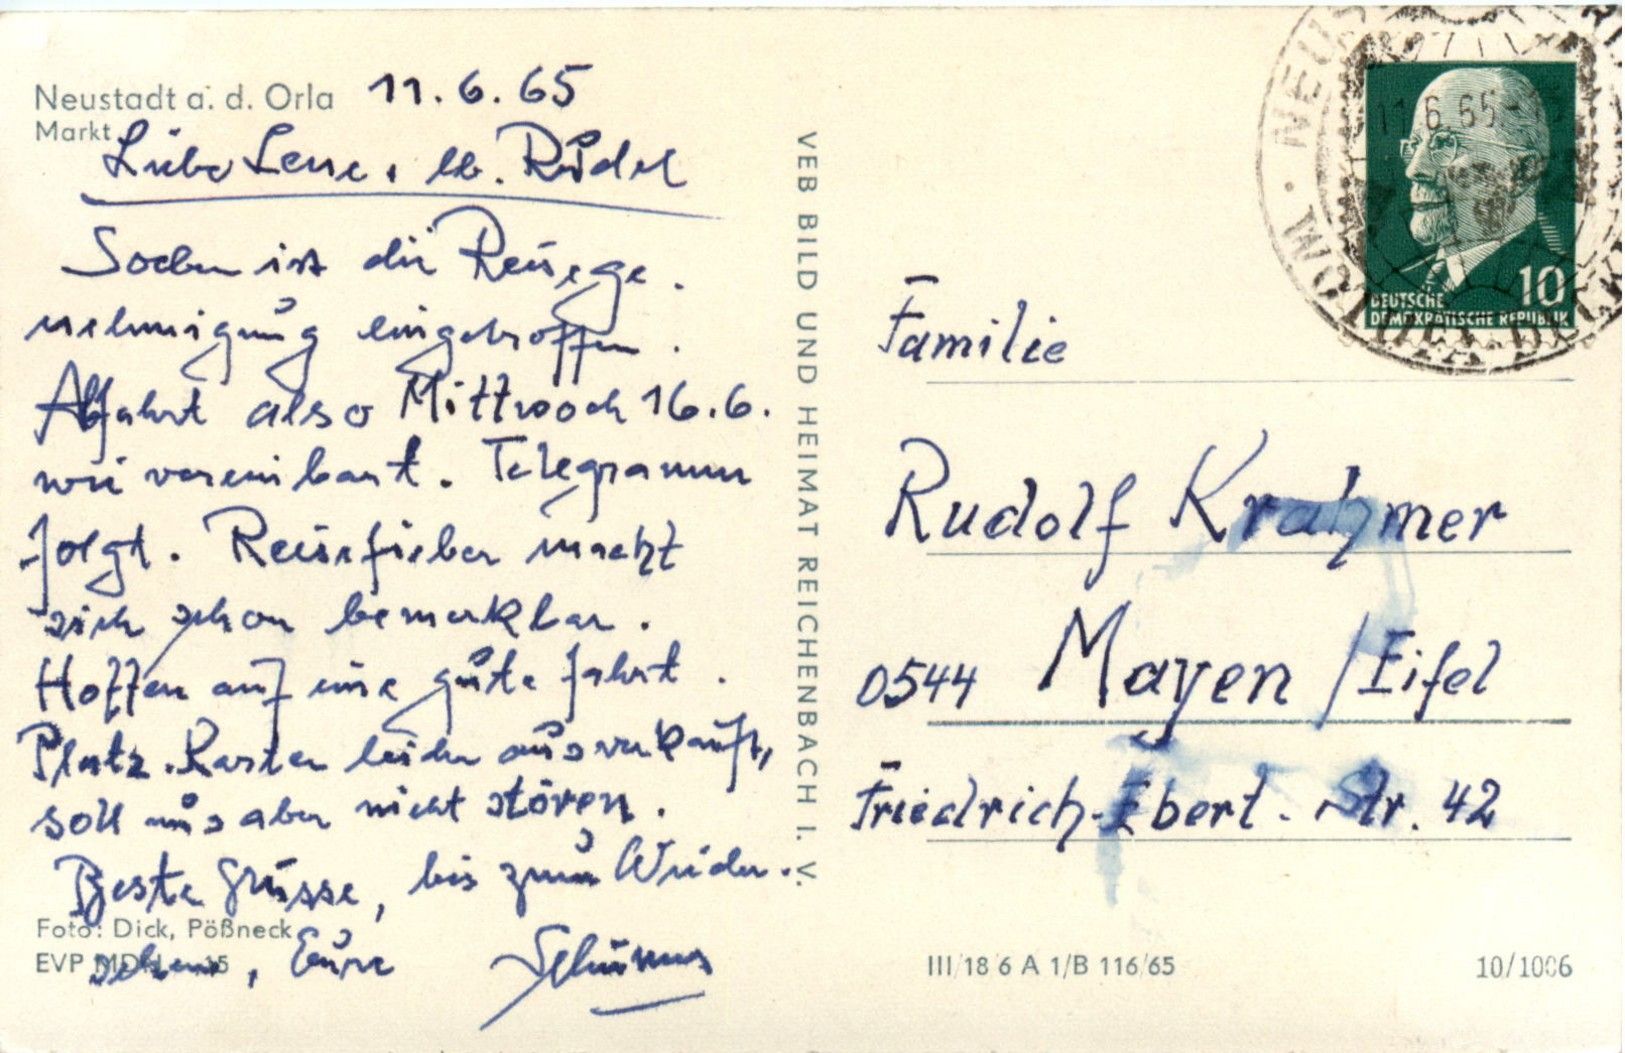 Neustadt a. d. Orla 11.6.65
Markt
Liebe Lene, lb. Rudel
Soeben ist die Reisege-
nehmigung eingetroffen.
Abfahrt also Mittwoch 16.6.
wie vereinbart. Telegramm
folgt. Reisefieber macht
sich schon bemerkbar.
Hoffen auf eine gute Fahrt.
Platz-Karten leider ausverkauft,
soll uns aber nicht stören.
Beste Grüsse, bis zum Wieder-
sehen, Eure
Foto: Dick, Pößneck
EVP MDN 15
VEB BILD UND HEIMAT REICHENBACH I. V.
11.6.65
10
DEUTSCHE
DEMOKRATISCHE REPUBLIK
Familie
Rudolf Krahmer
0544 Mayen / Eifel
Friedrich-Ebert-Str. 42
III/18 6 A 1/B 116/65
10/1006